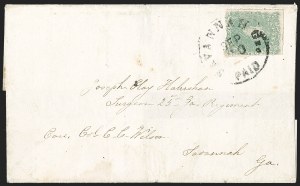 SAVANNAH
SEP
PAID
Joseph Clay Habersham
Surgeon 25 Ga Regiment
Care Col C. C. Wilson
Savannah
Ga.